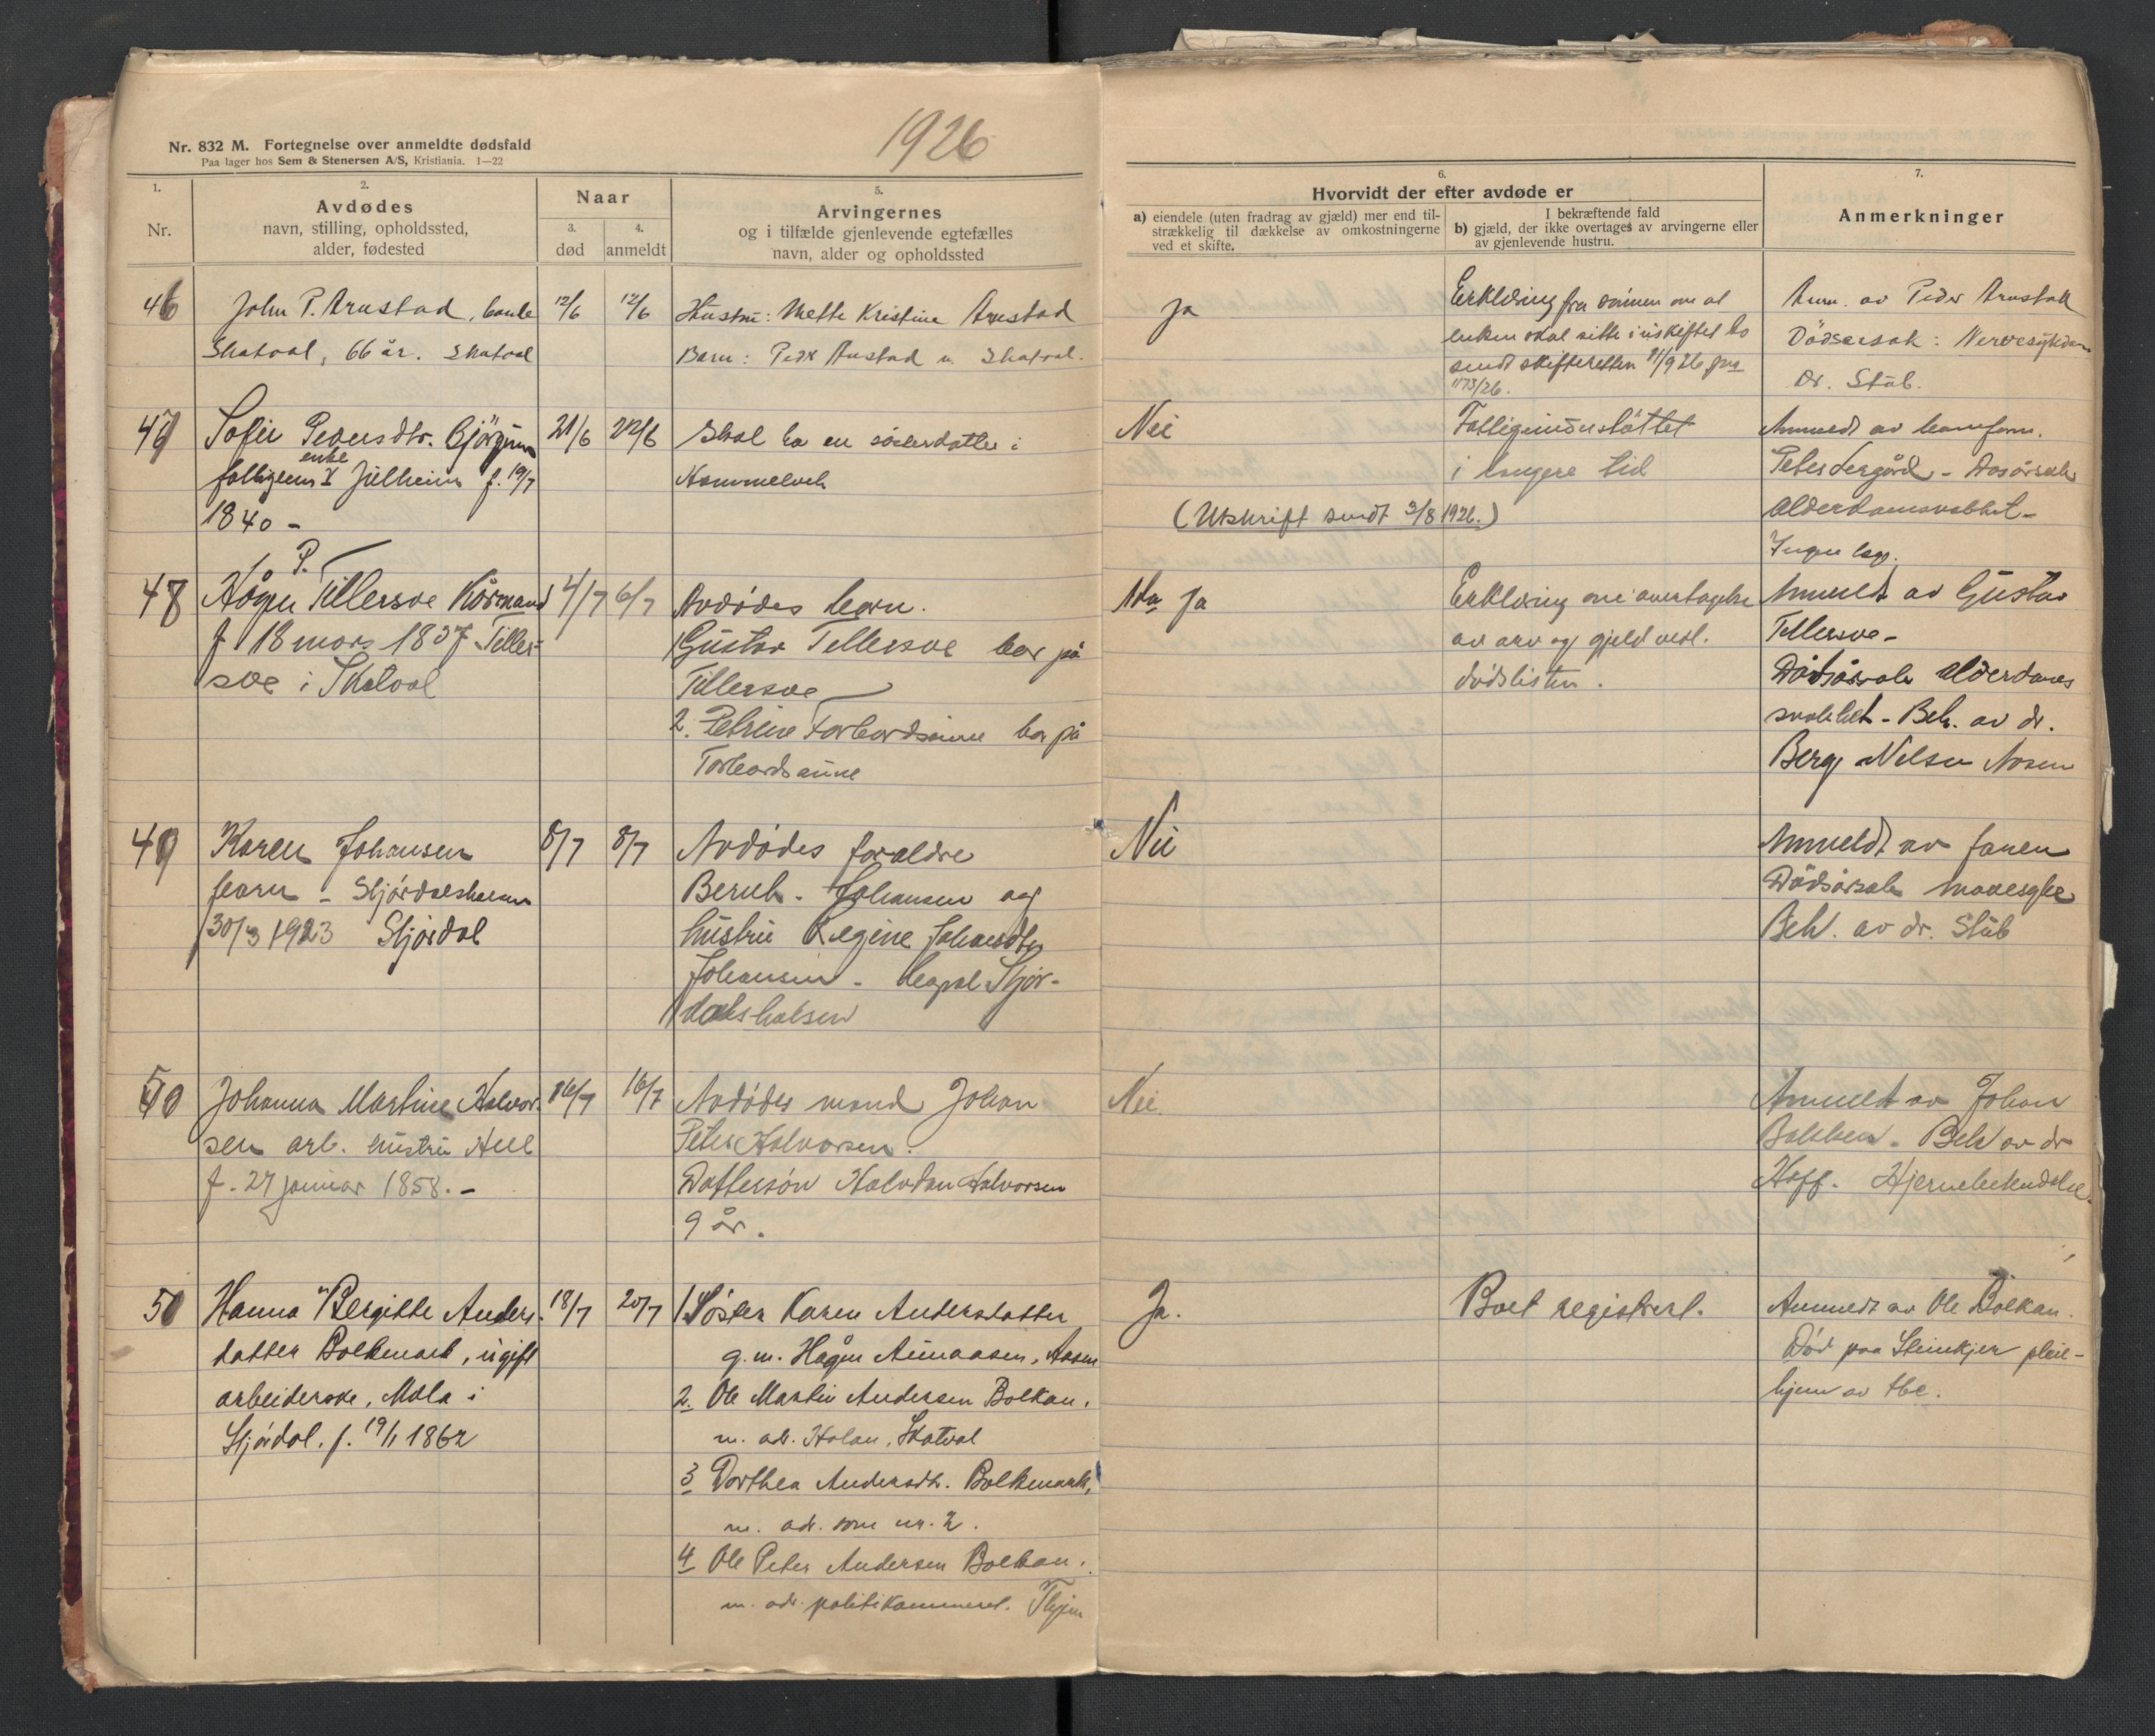 1926
Nr. 832 M. Fortegnelse over anmeldte dødsfald
Paa lager hos Sem & Stenersen A/S, Kristiania. 1—22
1.
Nr.
2.
Avdødes
navn, stilling, opholdssted,
alder, fødested
Naar
3.
død
4.
anmeldt
5.
Arvingernes
og i tilfælde gjenlevende egtefælles
navn, alder og opholdssted
6.
Hvorvidt der efter avdøde er
a) eiendele (uten fradrag av gjæld) mer end til-
strækkelig til dækkelse av omkostningerne
ved et skifte.
I bekræftende fald
b) gjæld, der ikke overtages av arvingerne eller
av gjenlevende hustru.
7.
Anmerkninger
46
John P. Arnstad,
Skatval, 66 år. Skatval
12/6
12/6
Hustru: Mette Kristine Arnstad
Barn: Peder Arnstad Skatval.
Ja
Erklæring fra om at
enken skal sitte i uskiftet bo
sendt skifteretten 21/9 26
1173/26.
Anm. av Peder Arnstad
Dödsårsak: Nervesykdom
Dr. Stub.
47
Sofie Pedersdtr.
enke
Julheim f. 19/7
1840 -
21/6
22/6
Skal ha en sösterdatter i
Hommelvik
Nei
Fattigunderstöttet
i lengere tid
(Utskrift sendt 3/8 1926.)
Anmeldt av
Peter - Dödsårsak
Alderdomsvakhet -
Ingen
48
P.
Hågen Tillersve Kårmand
f 18 mars 1837 Tiller-
sve i Skatval
4/7
6/7
Avdödes barn.
1 Gustav Tillersve bor på
Tillersve
2. Petrine Forbordsaune bor på
Forbordsaune
Ja
Erklæring om overtagelse
av arv og gjeld vedl.
dödslisten.
Anmeldt av Gustav
Tillersve -
Dödsårsak Alderdoms
svakhet - Beh. av dr.
Berg Nilsen Åsen
49
Karen Johansen
barn - Stjördalshalsen
30/3 1923 Stjördal
8/7
8/7
Avdödes foreldre
Bernh. Johansen og
hustru Regine Johansdtr
Johansen - Stjör-
dalshalsen
Nei
Anmeldt av faren
Dödsårsak mavesyke
Beh. av dr. Stub
50
Johanna Martine Halvor-
sen arb. hustru Hell
f. 27 januar 1858. -
16/7
16/7
Avdödes mand Johan
Peter Halvorsen.
Dattersön Halvdan Halvorsen
9 år.
Nei
Anmeldt av Johan
Bakken - Beh av dr
Hoff. Hjernebetendelse.
51
Hanna Bergitte Anders-
datter Bolkmark, ugift
arbeiderske, Mæla i
Stjördal. f. 19/1 1862
18/7
20/7
1 Söster Karen Andersdatter
g.m. Hågen Aunaasen, Aasen
2. Ole Martin Andersen Bolkan.
m. adr. Holan, Skatval
3 Dorthea Andersdtr. Bolkmark,
m. adr. som nr. 2.
4 Ole Peter Andersen Bolkan.
m. adr. politikammeret. Thjem
Ja.
Boet registrert.
Anmeldt av Ole Bolkan.
Död paa Steinkjer pleie-
hjem av tbc.